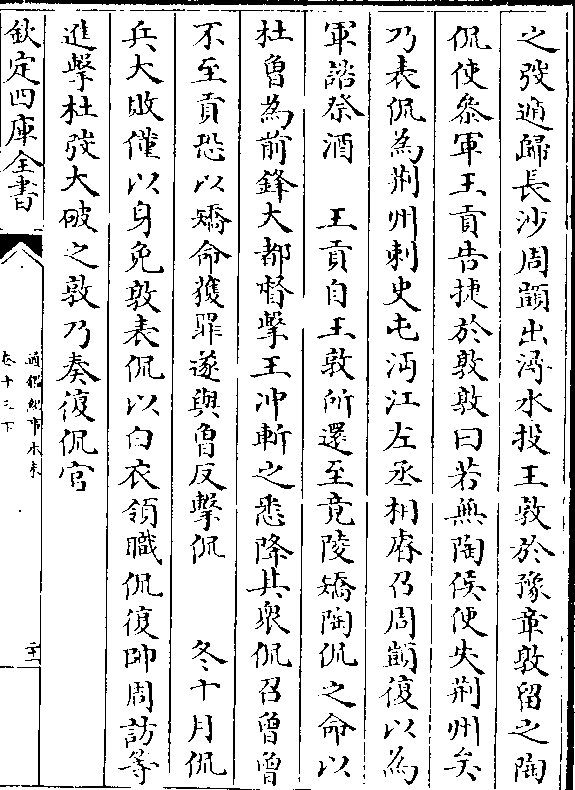 之弢遁歸長沙周顗出潯水投王敦於豫章敦留之陶
侃使參軍王貢告捷於敦敦曰若無陶侯便失荆州矣
乃表侃為荆州刺史屯沔江左丞相睿乃周顗復以為
軍諮祭酒　王貢自王敦所還至竟陵矯陶侃之命以
杜曾為前鋒大都督撃王冲斬之悉降其衆侃召曾曾
不至貢恐以矯命獲罪遂與曾反撃侃　冬十月侃
兵大敗僅以身免敦表侃以白衣領職侃復帥周訪等
進撃杜弢大破之敦乃奏復侃官
欽定四庫全書
通鑑紀事本末
卷十三下